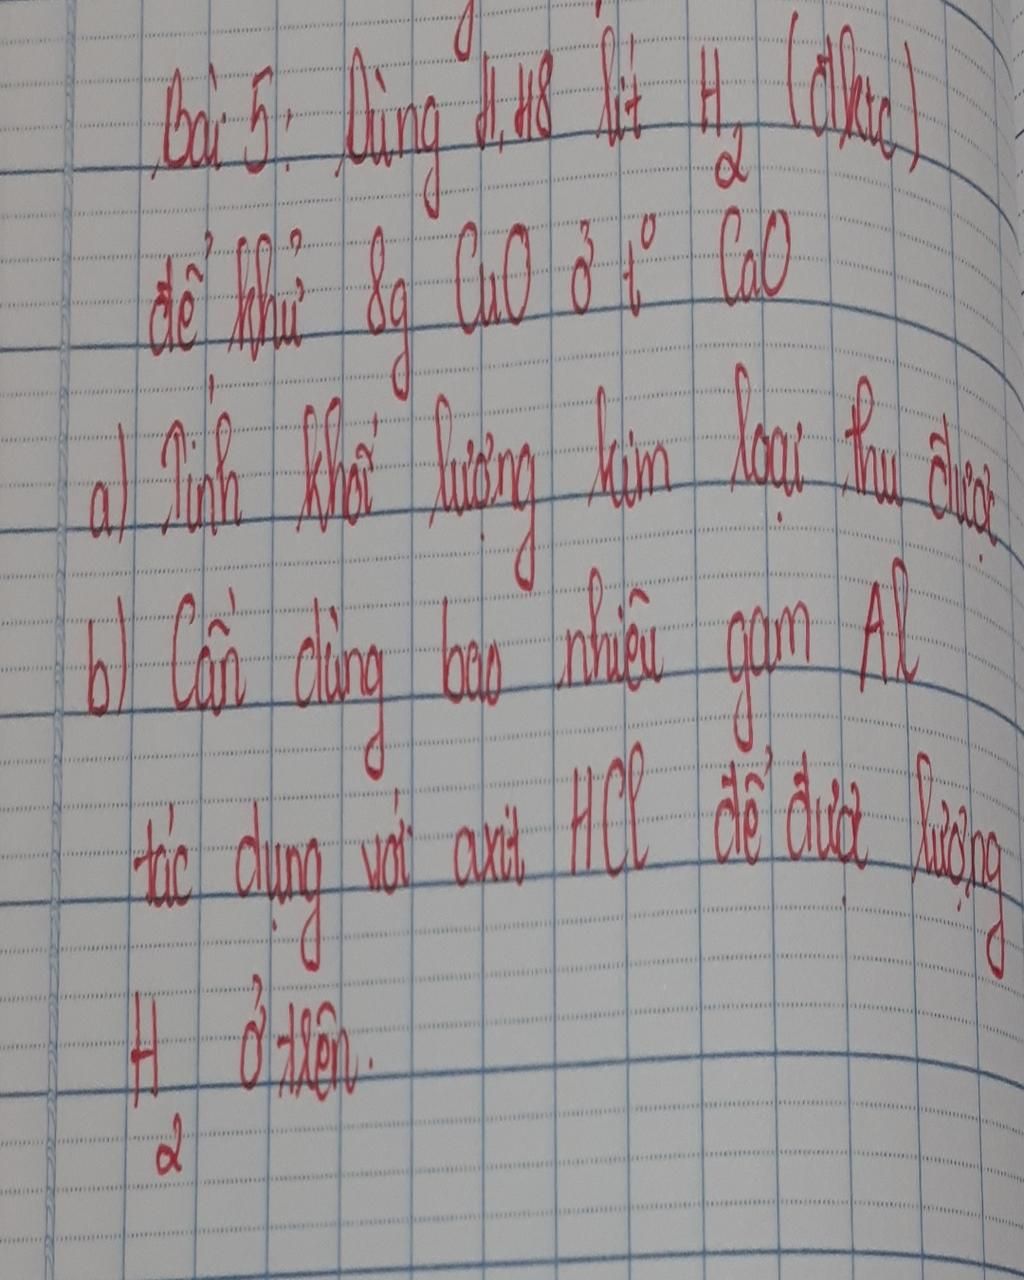 Bài 5: Dùng 4,48 lít H2 (đktc)
để khử 8g CuO ở t° CaO
a) Tính khối lượng kim loại thu được
b) Cần dùng bao nhiêu gam Al
tác dụng với axit HCl để được lượng
H2 ở trên.